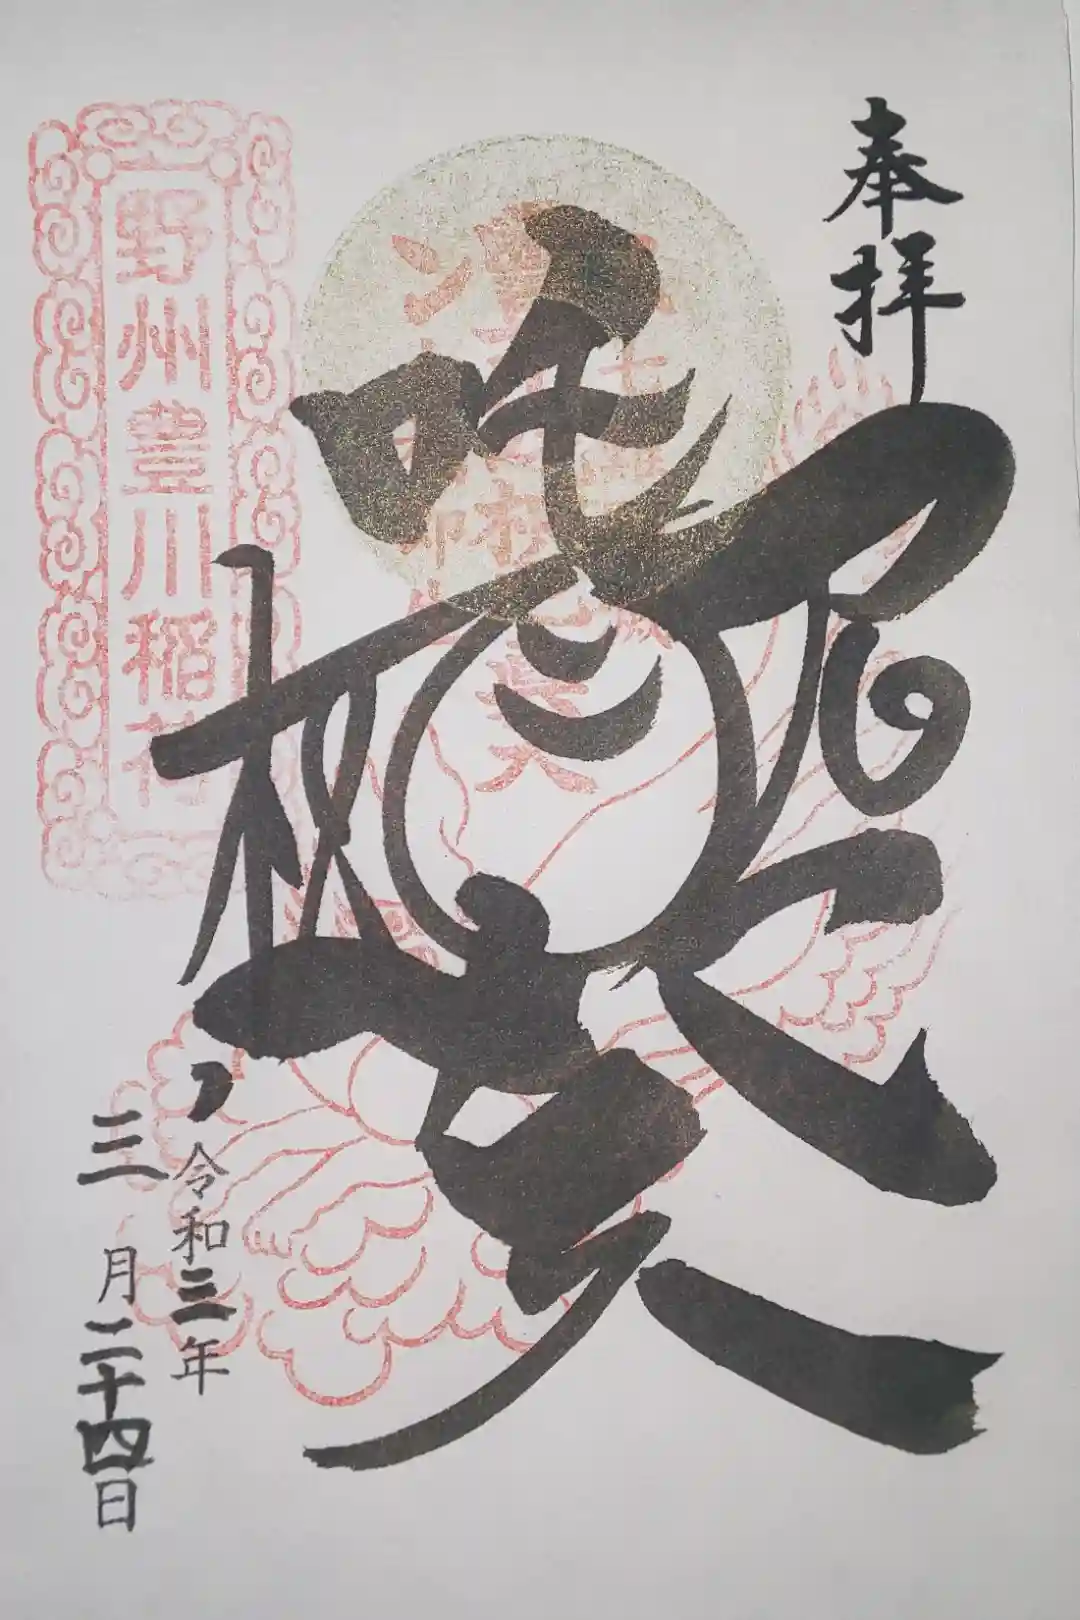 奉拝
吒枳尼真天
令和三年
三月二十四日
野州豊川稲荷